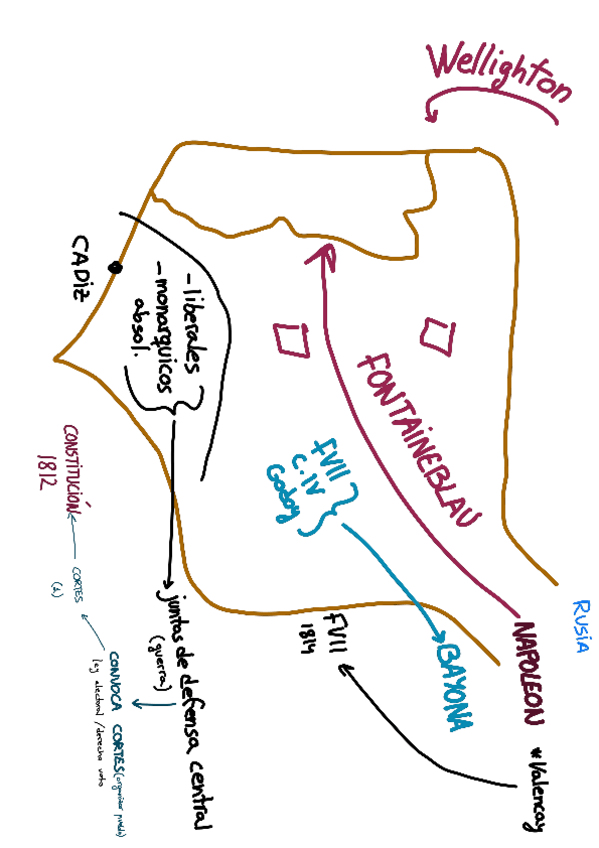 Wellighton
CADIZ
- liberales
- monarquicos
absol.
FONTAINEBLAU
FVII
C. IV
Godoy
BAYONA
NAPOLEON
*Valencay
RUSIA
FVII
1814
juntas de defensa central
(guerra)
CONVOCA CORTES (organizar pueblo)
ley electoral / derecho voto
CORTES
(1)
CONSTITUCIÓN
1812